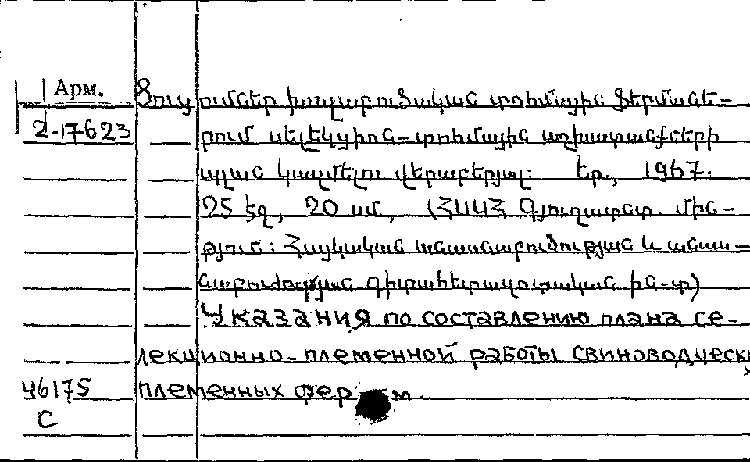 Арм.
2-17623
Ցուցումներ խոզաբուծական տոհմային ֆերմանե-
րում սելեկցիոն-տոհմային աշխատանքների
պլան կազմելու վերաբերյալ: Եր., 1967.
25 էջ, 20 սմ, (ՀՍՍՀ Գյուղատնտ. մին-
թյուն: Հայկական անասնաբուծության և անաս-
նաբուժության գիտահետազոտական ին-տ)
Указания по составлению плана се-
лекционно-племенной работы свиноводческ
племенных фер м.
46175
С